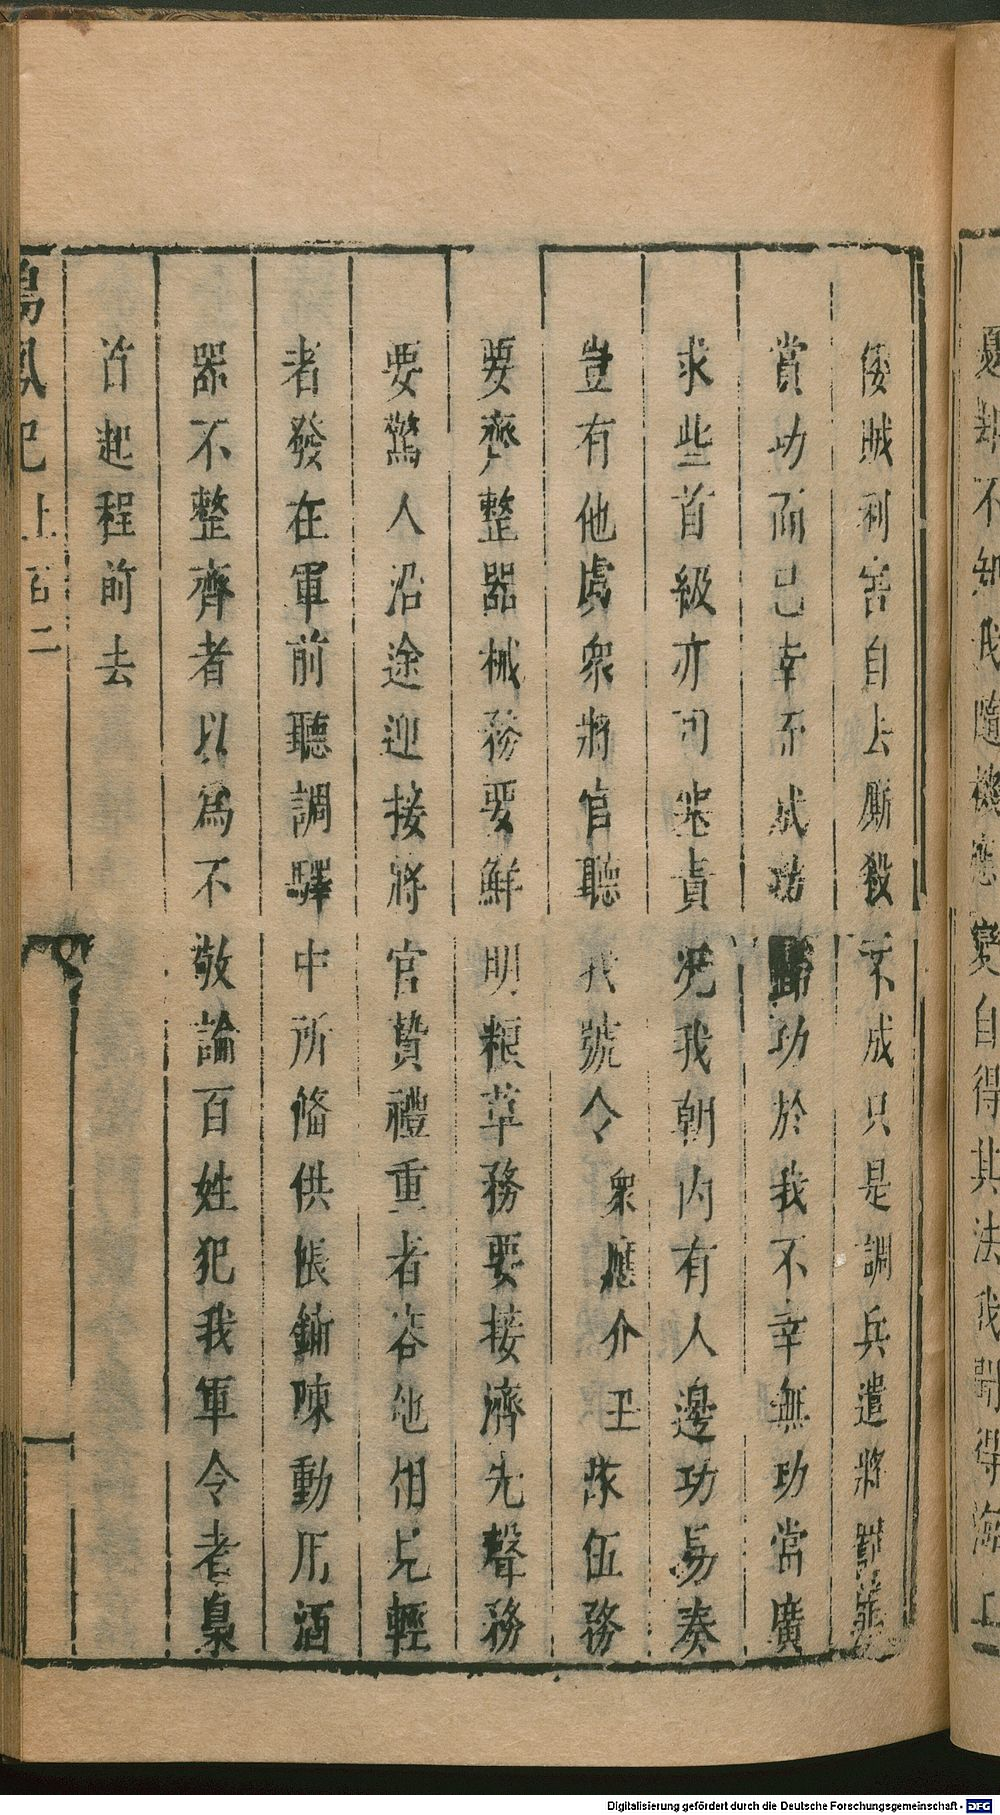 憂却不知我隨機應變自得其法我
倭賊利害自去廝殺不成只是調兵遣將
賞功而已幸而成功歸功於我不幸無功當廣
求些首級亦可塞責况我朝内有人邊功易奏
豈有他虞衆將官聽我號令衆應介丑隊伍務
要齊整器械務要鮮明粮草務要接濟先聲務
要驚人沿途迎接將官贄禮重者容他相見輕
者發在軍前聽調驛中所俻供帳鋪陳動用酒
器不整齊者以爲不敬論百姓犯我軍令者梟
首起程前去
鳴鳳記上 百二
Digitalisierung gefördert durch die Deutsche Forschungsgemeinschaft - DFG